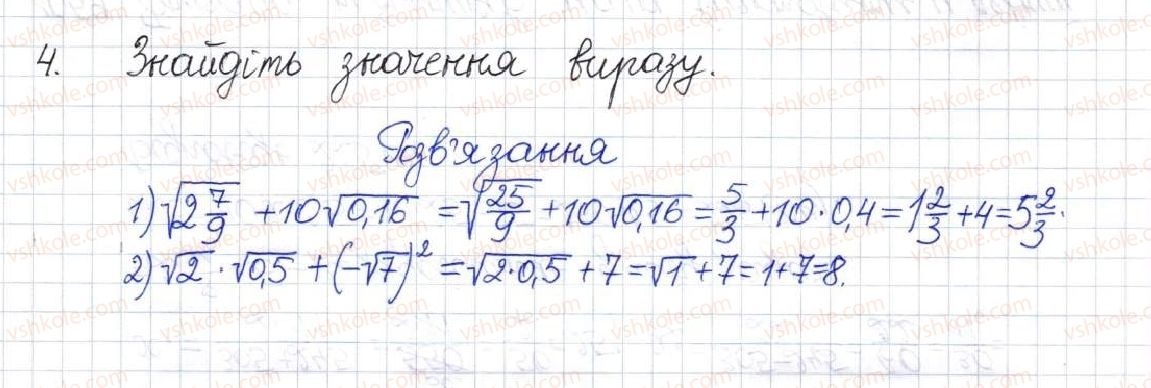 4. Знайдіть значення виразу.
Розв'язання
1) √(2 7/9) + 10√0,16 = √(25/9) + 10√0,16 = 5/3 + 10·0,4 = 1 2/3 + 4 = 5 2/3.
2) √2 · √0,5 + (-√7)² = √(2·0,5) + 7 = √1 + 7 = 1 + 7 = 8.